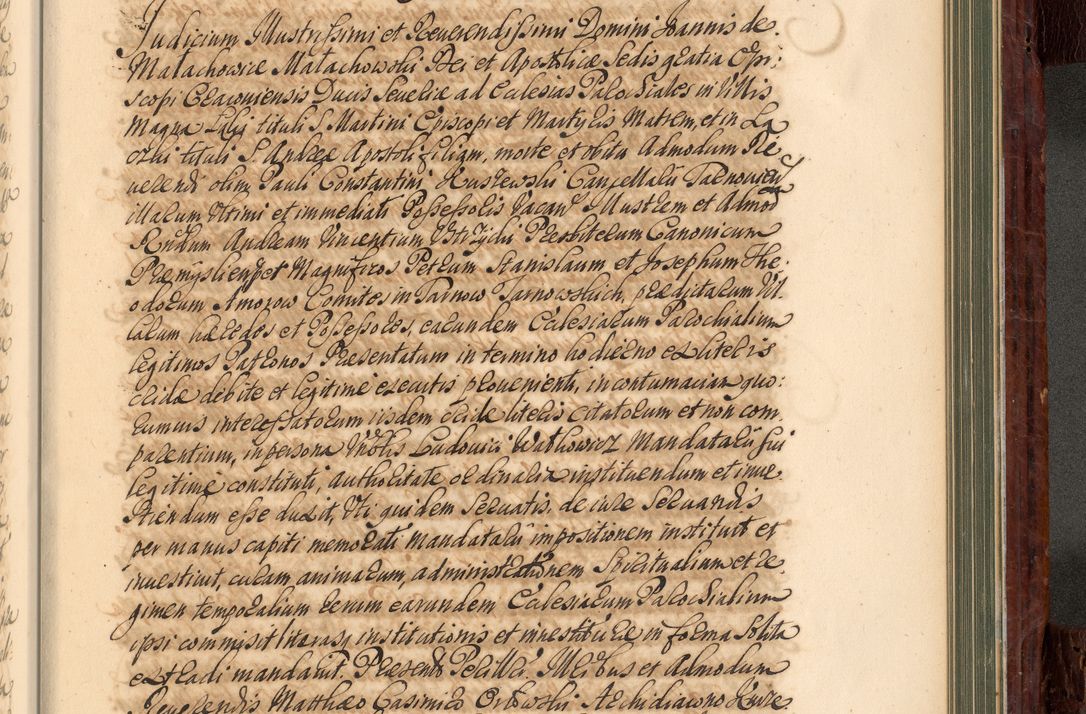 Judicium Illustrissimi et Reverendissimi Domini Joannis de
Małachowice Małachowski Dei et Apostolicæ Sedis gratia Epi:
scopi Cracoviensis Ducis Severiæ ad Eclesias Parochiales in Villis
Magna tituli S. Martini Episcopi et Martyris Matrem, et in Ła
tituli S. Andreæ Apostoli filiam, morte et obitu Admodum Re
verendi olim Pauli Constantini Kuszewski Cancellarii Tarnovien
illarum Ultimi et immediati Possessoris Vacan. Illustrem et Admod
Rndum Andream Vincentium Presbiterum Canonicum
Præmyslien, et Magnificos Petrum Stanislaum et Josephum The:
odorum Amorow Comites in Tarnow Tarnowskich, prædictarum Vil
larum hæredes et Possessores, earundem Eclesiarum Parochialium
legitimos Patronos Præsentatum in termino hodierno ex literis
debite et legitime executis provenienti, in contumaciam quo:
rumvis interessatorum iisdem literis citatorum et non com
parentium, in persona Ludovici Wathowicz Mandatarii sui
legitime constituti, authoritate ordinaria instituendum et inve
stiendum esse duxit, Uti quidem servatis de iure servandis
per manus capiti memorati Mandatarii impositionem instituit et
investivit, curam animarum, administrationem Spiritualium et re
gimen temporalium rerum earundem Eclesiarum Parochialium
ipsi commisit literasq institutionis et investituræ in forma solita
extradi mandavit. Præsent. Perill. et Admodum
Reverendis Matthæo Casimiro Orłowski Archidiacono